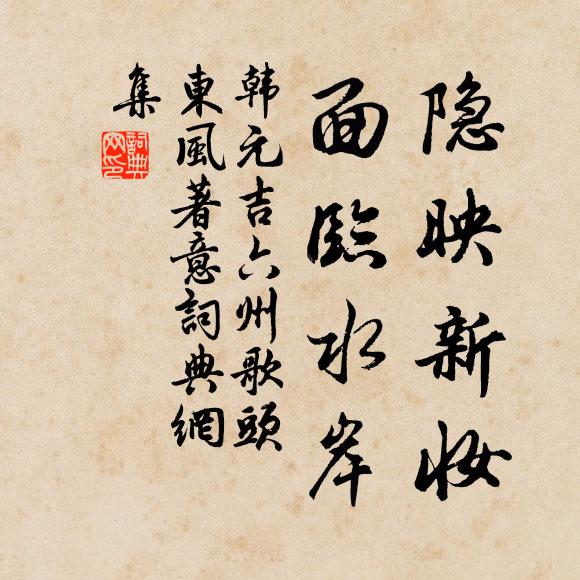 隐映新妆
面临水岸
韩元吉六州歌頭
東風著意詞典網
集
詞典
网印